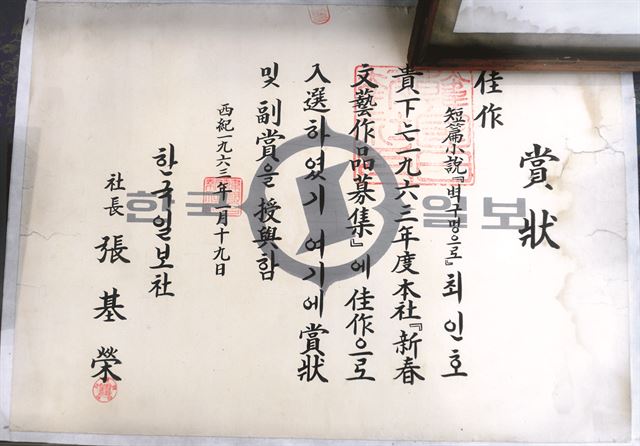 賞狀
佳作
短篇小說『벽구멍으로』 최인호
貴下는一九六三年度本社『新春
文藝作品募集』에佳作으로
入選하였기여기에賞狀
및副賞을授與함
西紀一九六三年一月十九日
한국일보社
社長 張基榮
한국일보